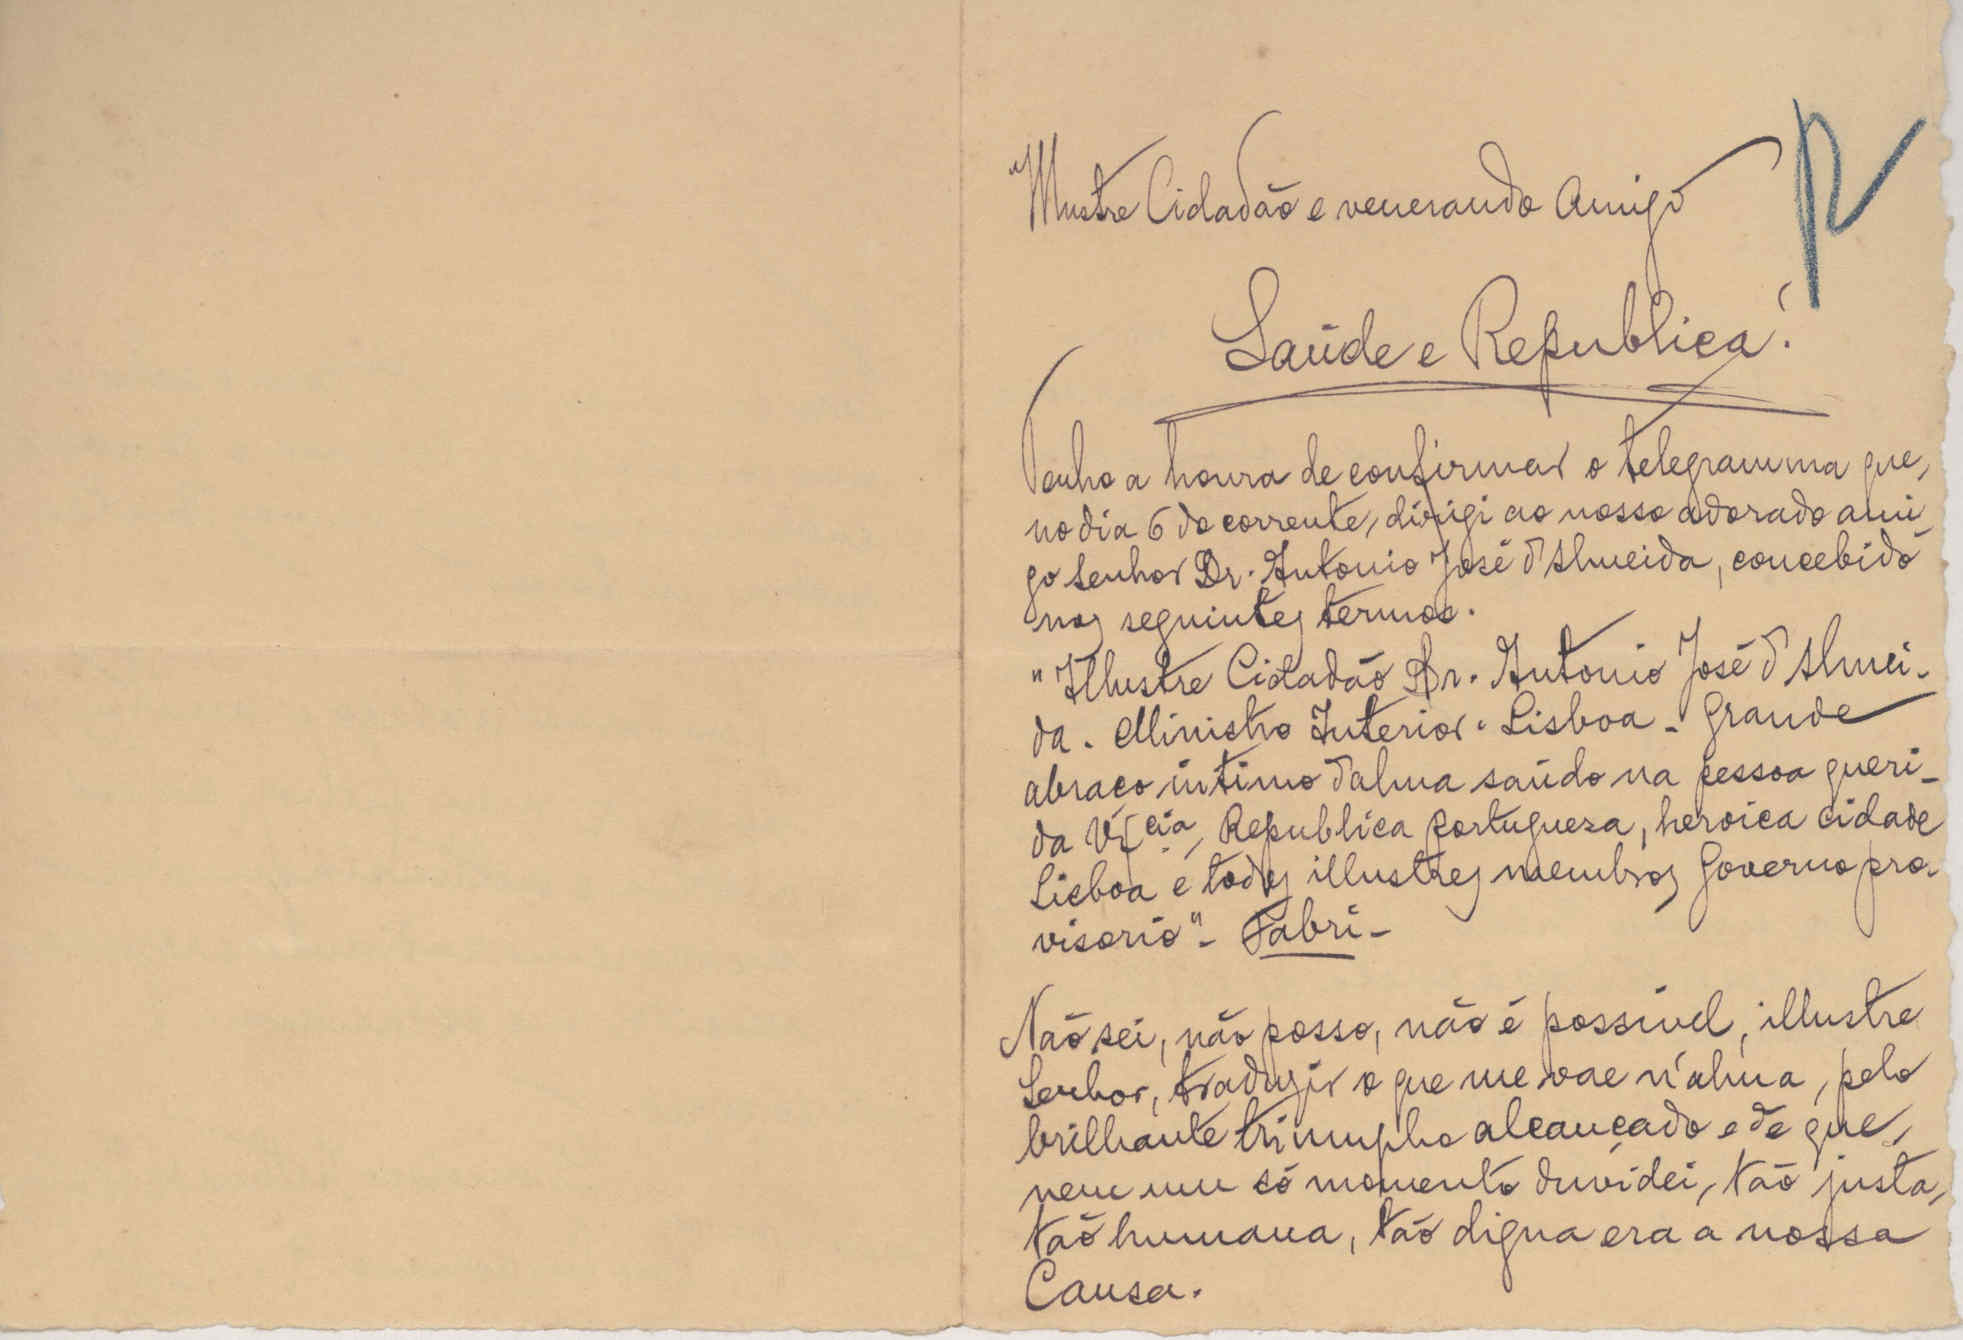 Illustre Cidadão e venerando Amigo
R
Saúde e Republica!
Tenho a honra de confirmar o telegramma que,
no dia 6 do corrente, dirigi ao nosso adorado ami-
go Senhor Dr. Antonio José d'Almeida, concebido
nos seguintes termos.
"Illustre Cidadão Dr. Antonio José d'Almei-
da. Ministro Interior. Lisboa - Grande
abraço intimo d'alma saúdo na pessoa queri-
da V. Ecia, Republica portugueza, heroica cidade
Lisboa e todos illustres membros Governo pro-
visorio" - Fabri -
Não sei, não posso, não é possivel, illustre
Senhor, traduzir o que me vae n'alma, pelo
brilhante triumpho alcançado e de que,
nem um só momento duvidei, tão justa,
tão humana, tão digna era a nossa
Causa.